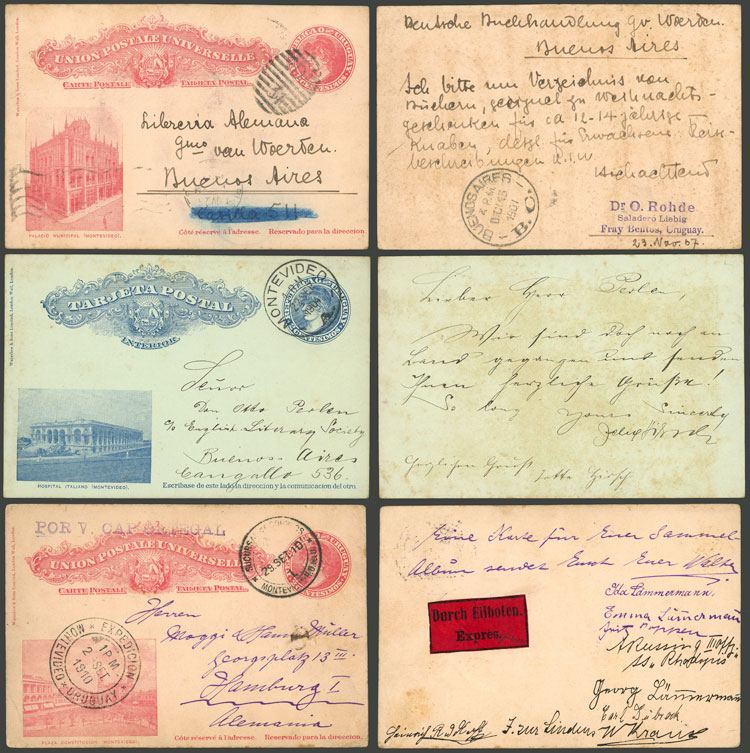 UNION POSTALE UNIVERSELLE
CARTE POSTALE TARJETA POSTAL
Libreria Alemana
Gmo van Woerden.
Buenos Aires
PALACIO MUNICIPAL (MONTEVIDEO).
Côté réservé à l'adresse. Reservado para la direccion.
Deutsche Buchhandlung Gv. Woerden.
Buenos Aires
Ich bitte um Verzeichniss von
Büchern, geeignet zu Weihnachts-
geschenken für ca 12-14 jährige
Knaben, für Erwachsene: Reise-
beschreibungen u.s.w.
Hochachtend
BUENOS AIRES
1907
Dr O. Rohde
Saladero Liebig
Fray Bentos, Uruguay.
23. Nov. 07.
TARJETA POSTAL
INTERIOR.
MONTEVIDEO
Señor
Don Otto Perlen
c/o English Literary Society
Buenos Aires
Cangallo 536.
HOSPITAL ITALIANO (MONTEVIDEO).
Escríbase de este lado la direccion y la comunicacion del otro.
Lieber Herr Perlen,
Wir sind doch noch an
Land gegangen und senden
Ihnen herzliche Grüße!
So long Yours Sincerely
Felix Hirsch
Herzlichen Gruß
POR V. CAP ORTEGAL
UNION POSTALE UNIVERSELLE
CARTE POSTALE TARJETA POSTAL
29 SET 10
MONTEVIDEO
Herren
Maggi & Hans Müller
Georgsplatz 13 III.
Hamburg I
Alemania
EXPEDICION
1 P.M.
SET
1910
MONTEVIDEO URUGUAY
PLAZA CONSTITUCION (MONTEVIDEO).
Côté réservé à l'adresse. Reservado para la direccion.
Eine Karte für Euer Sammel
Album sendet Euch Euer
Eda Lämmermann.
Emma Lämmermann
Durch Eilboten.
Expres.
Georg Lämmermann
W Kraus